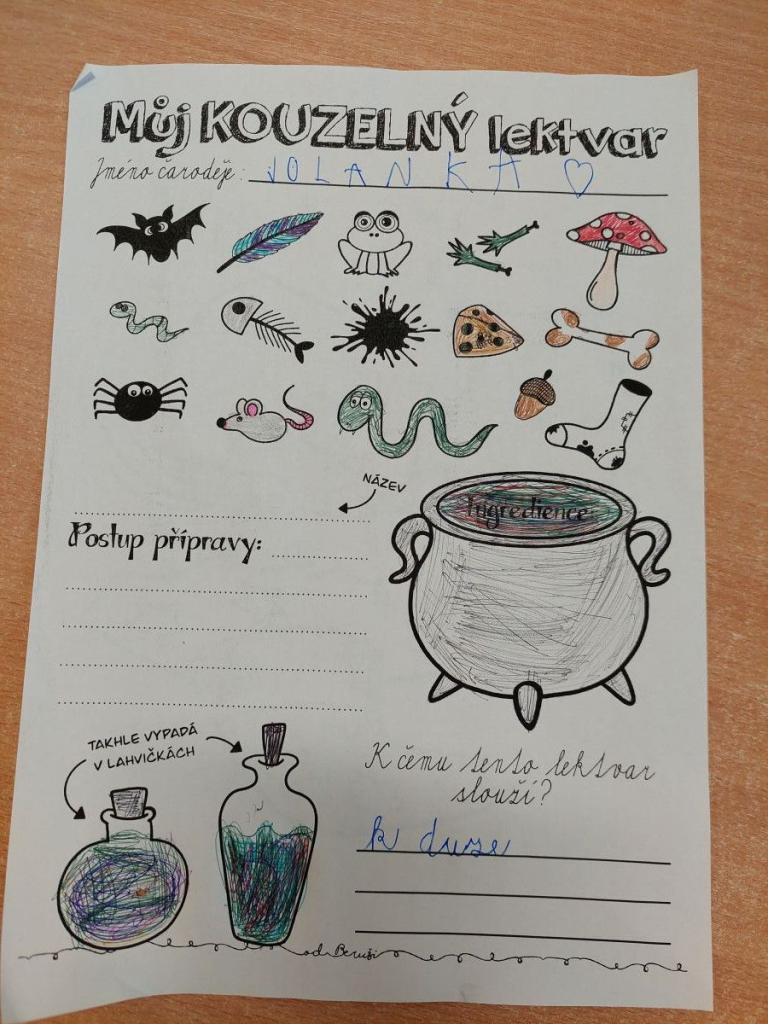 Můj KOUZELNÝ lektvar
Jméno čaroděje: JOLANKA ♡
NÁZEV
Ingredience
Postup přípravy:
TAKHLE VYPADÁ
V LAHVIČKÁCH
K čemu tento lektvar
slouží?
k duze
od Beruši